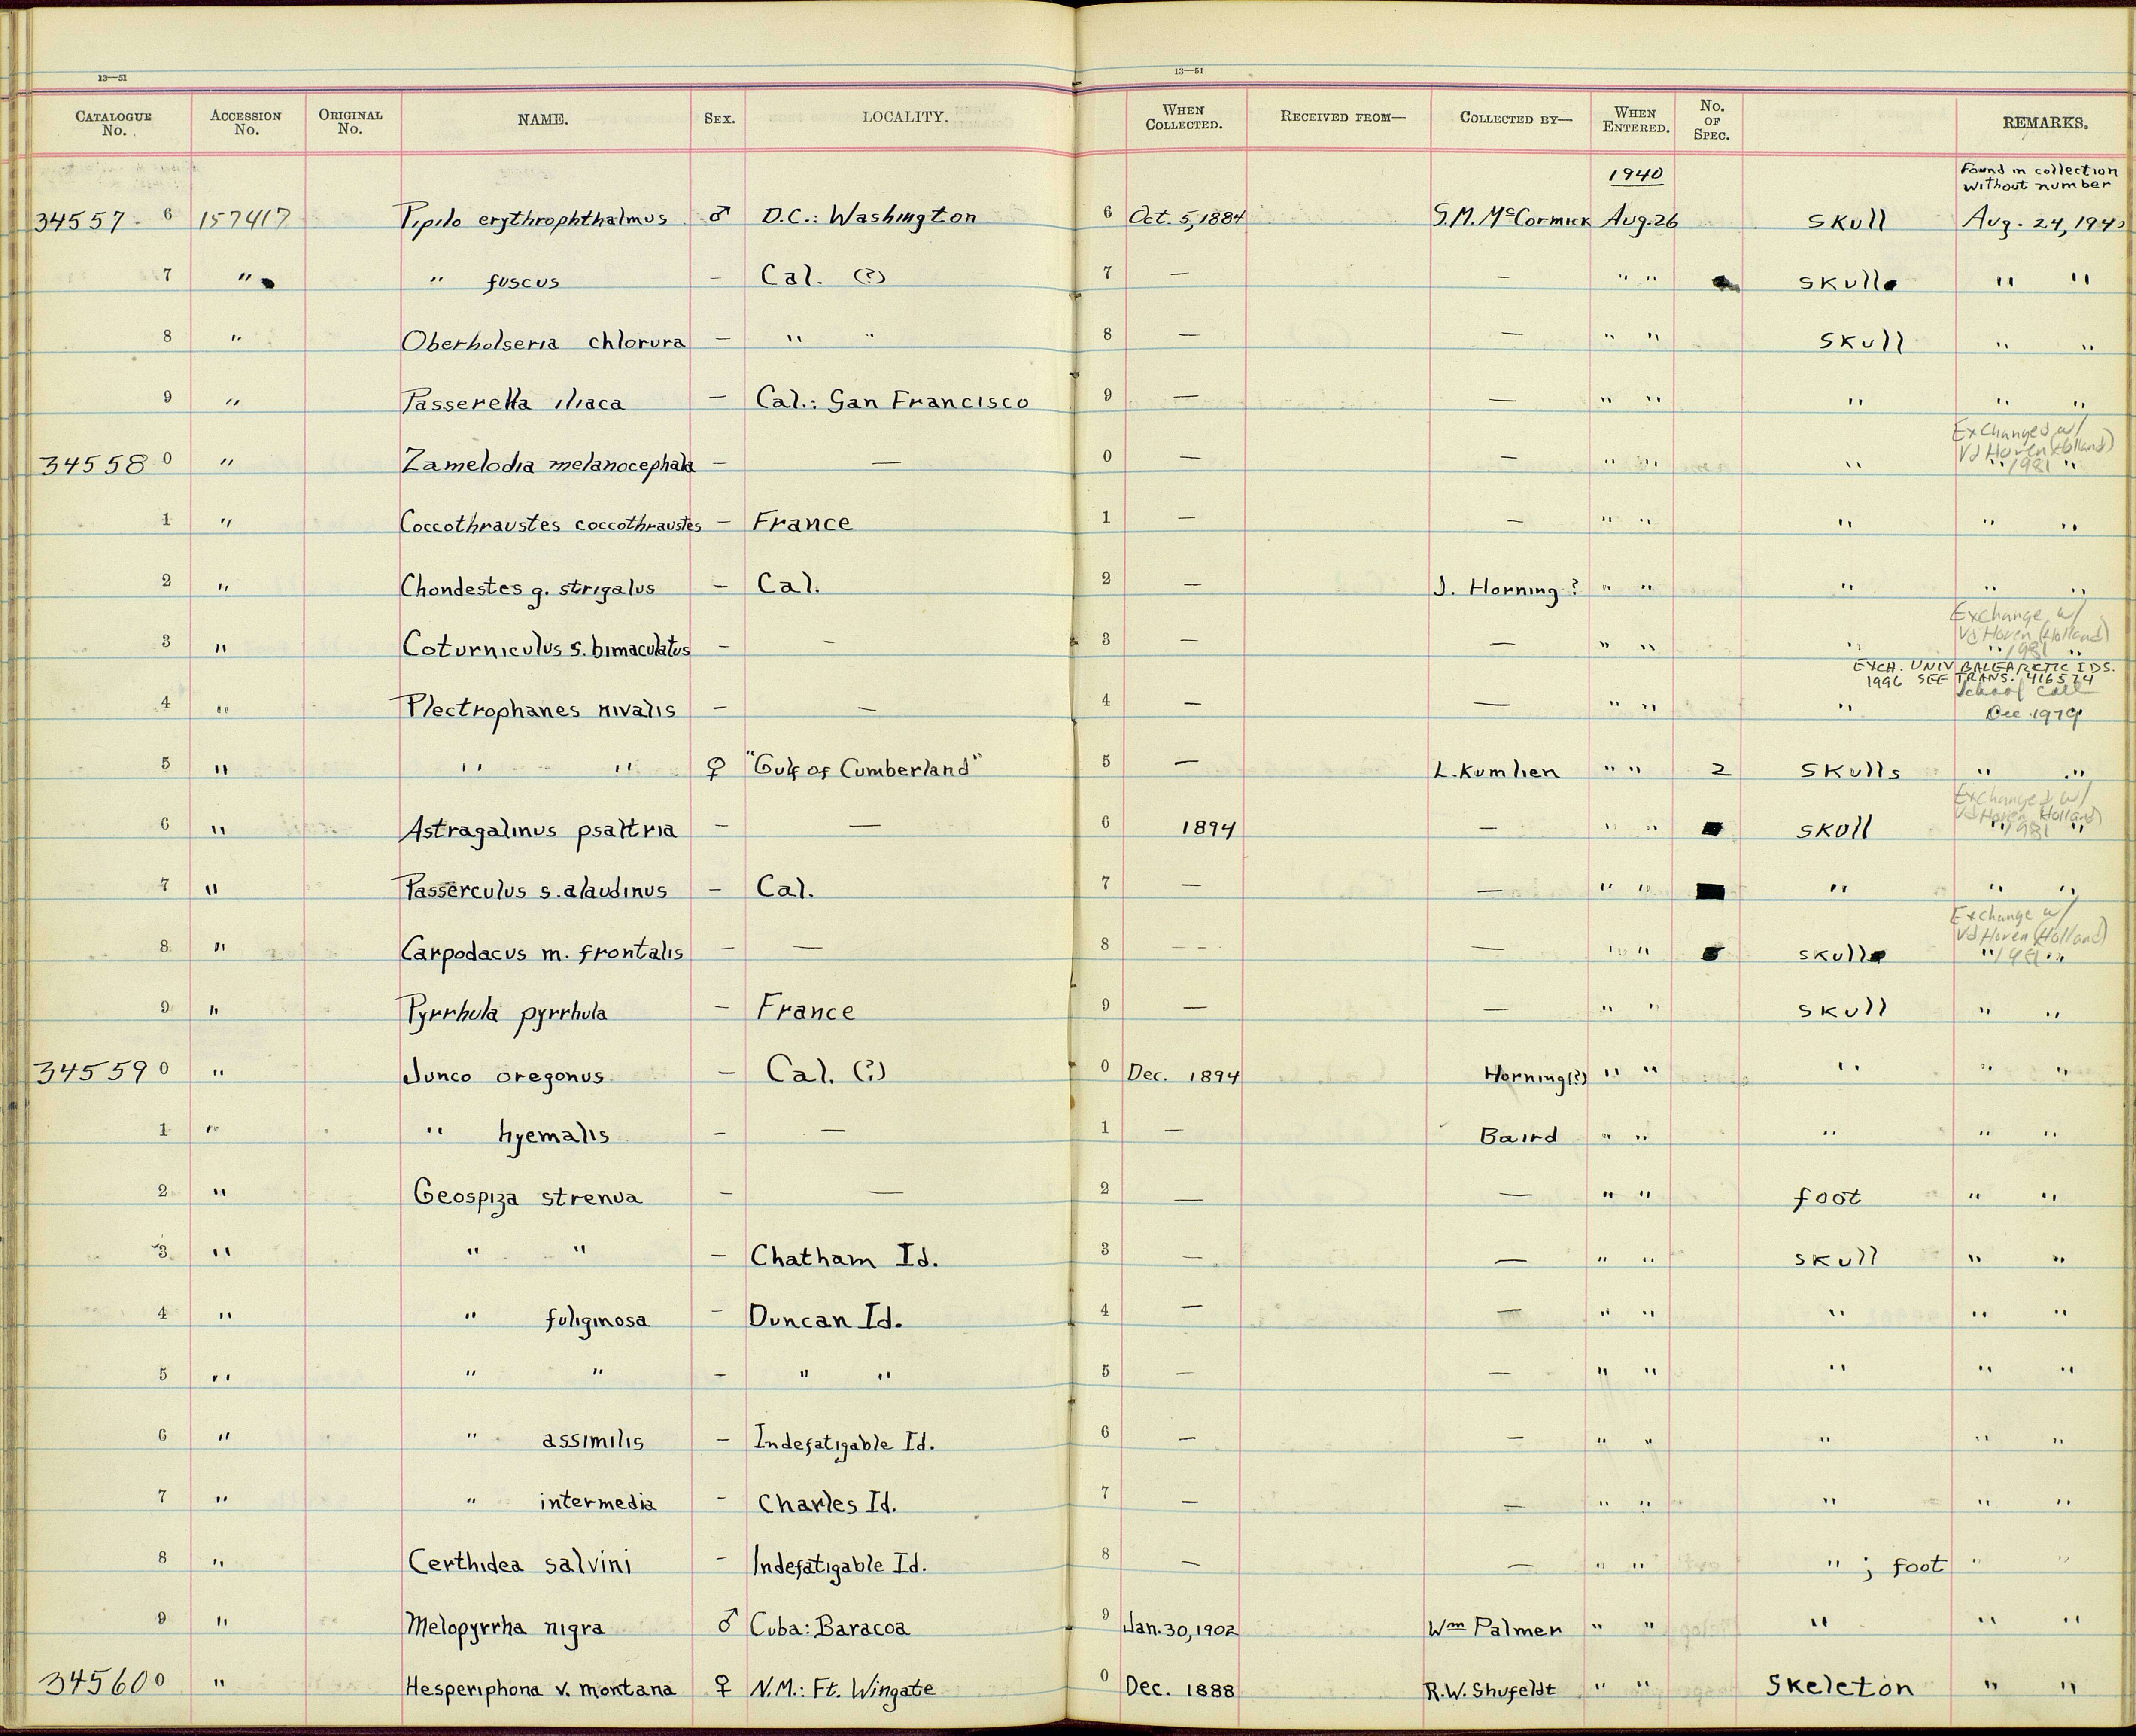 13—51 13—51
CATALOGUE No. ACCESSION No. ORIGINAL No. NAME. SEX. LOCALITY. WHEN COLLECTED. RECEIVED FROM— COLLECTED BY— WHEN ENTERED. No. OF SPEC. REMARKS.
1940 Found in collection
without number
34557 6 157417 Pipilo erythrophthalmus ♂ D.C.: Washington 6 Oct. 5, 1884 S.M. McCormick Aug. 26 Skull Aug. 24, 1940
7 " " fuscus – Cal. (?) 7 — – " " Skull " "
8 " Oberholseria chlorura – " " 8 — — " " Skull " "
9 " Passerella iliaca – Cal.: San Francisco 9 — — " " " " "
Exchanged w/
Vd Hoven (Holland)
34558 0 " Zamelodia melanocephala – — 0 — – " " " " 1981 "
1 " Coccothraustes coccothraustes – France 1 — – " " " " "
2 " Chondestes g. strigatus – Cal. 2 — J. Horning? " " " " "
Exchange w/
Vd Hoven (Holland)
3 " Coturniculus s. bimaculatus – – 3 — — " " " " 1981 "
EXCH. UNIV BALEARCTIC IDS.
1996 SEE TRANS. 416574
School Coll
4 " Plectrophanes nivalis – — 4 — — " " " Dec. 1979
5 " " " ♀ "Gulf of Cumberland" 5 — L. Kumlien " " 2 Skulls " "
Exchanged w/
Vd Hoven Holland)
6 " Astragalinus psaltria – — 6 1894 – " " Skull " 1981 "
7 " Passerculus s. alaudinus – Cal. 7 — — " " " " "
Exchange w/
Vd Hoven (Holland)
8 " Carpodacus m. frontalis – — 8 – – — " " Skull " 1981 "
9 " Pyrrhula pyrrhula – France 9 — — " " Skull " "
34559 0 " Junco oregonus – Cal. (?) 0 Dec. 1894 Horning(?) " " " " "
1 " " hyemalis – — 1 — Baird " " " " "
2 " Geospiza strenua – — 2 — — " " foot " "
3 " " " – Chatham Id. 3 — — " " Skull " "
4 " " fuliginosa – Duncan Id. 4 — — " " " " "
5 " " " – " " 5 — — " " " " "
6 " " assimilis – Indefatigable Id. 6 — – " " " " "
7 " " intermedia – Charles Id. 7 — — " " " " "
8 " Certhidea salvini – Indefatigable Id. 8 — — " " " ; foot " "
9 " Melopyrrha nigra ♂ Cuba: Baracoa 9 Jan. 30, 1902 Wm Palmer " " " " "
34560 0 " Hesperiphona v. montana ♀ N.M.: Ft. Wingate 0 Dec. 1888 R.W. Shufeldt " " Skeleton " "